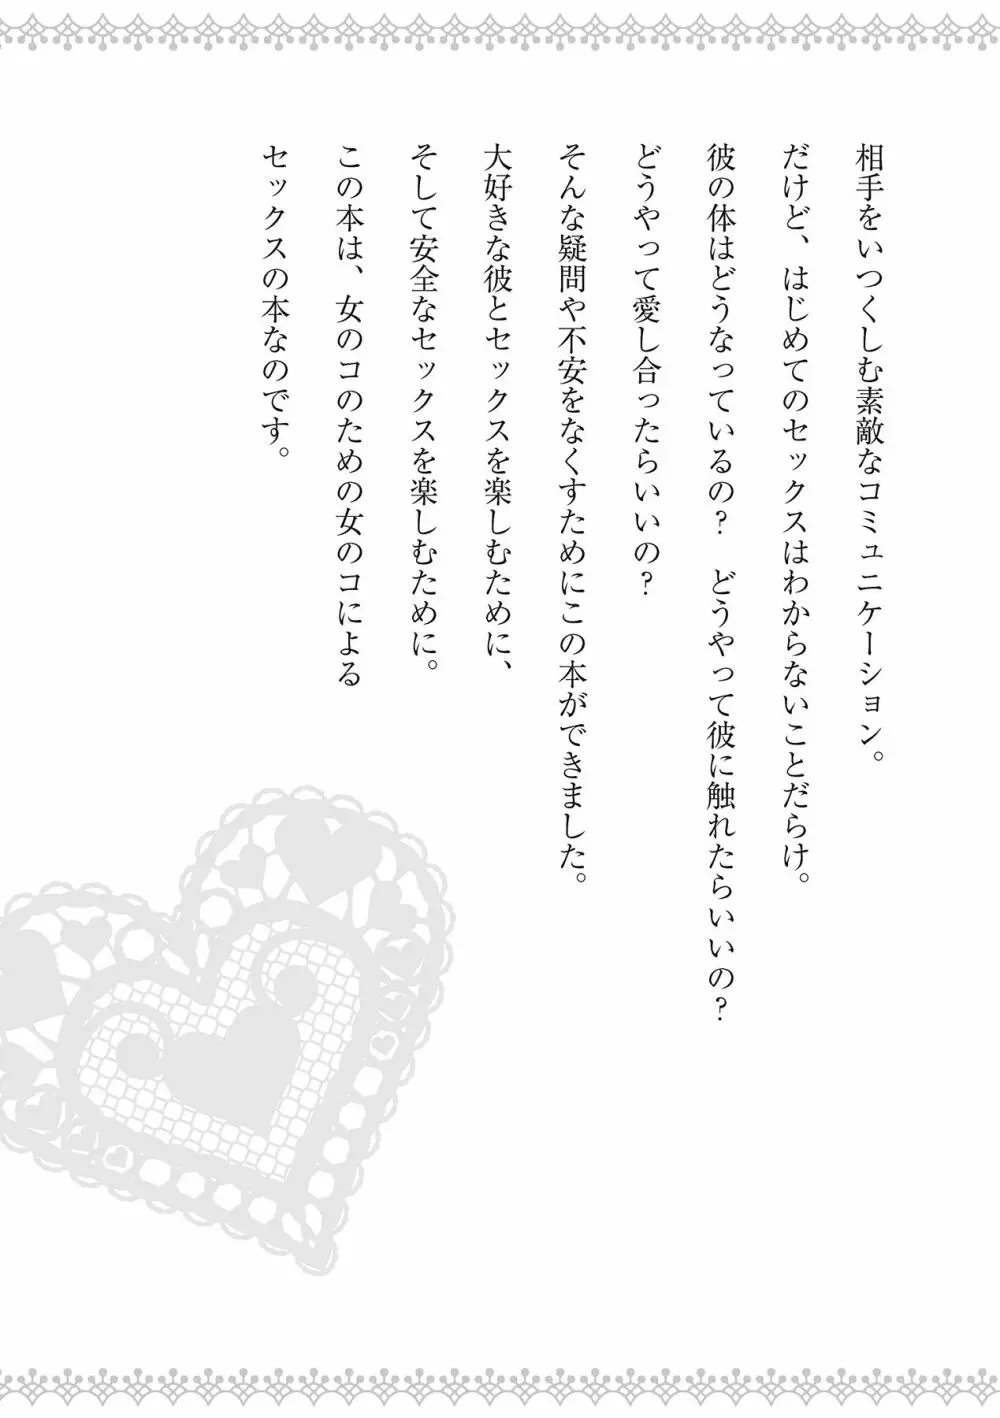 相手をいつくしむ素敵なコミュニケーション。
だけど、はじめてのセックスはわからないことだらけ。
彼の体はどうなっているの？　どうやって彼に触れたらいいの？
どうやって愛し合ったらいいの？
そんな疑問や不安をなくすためにこの本ができました。
大好きな彼とセックスを楽しむために、
そして安全なセックスを楽しむために。
この本は、女のコのための女のコによる
セックスの本なのです。